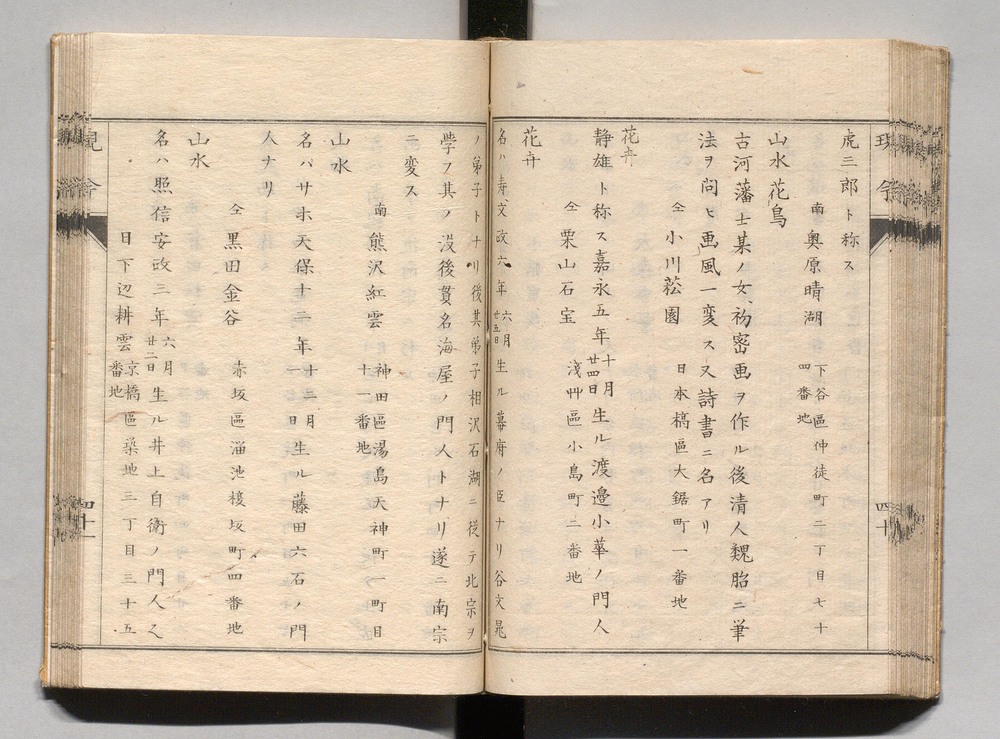 虎三郎ト称ス
南 奥原晴湖 下谷區仲徒町二丁目七十
四番地
山水 花鳥
古河藩士某ノ女、初密画ヲ作ル後清人魏胎ニ筆
法ヲ問ヒ画風一変ス又詩書ニ名アリ
仝 小川菘園 日本橋區大鋸町一番地
花卉
静雄ト称ス嘉永五年十月廿四日生ル渡邉小華ノ門人
仝 栗山石宝 淺艸區小島町二番地
花卉
名ハ寿文政六年六月廿五日生ル幕府ノ臣ナリ谷文晁
ノ弟子トナリ後其弟子相沢石湖ニ従テ北宗ヲ
學フ其ノ没後貫名海屋ノ門人トナリ遂ニ南宗
ニ変ス
南 熊沢紅雲 神田區湯島天神町一町目
十一番地
山水
名ハサホ天保十二年十二月一日生ル藤田六石ノ門
人ナリ
仝 黒田金谷 赤坂區溜池榎坂町四番地
山水
名ハ照信安政三年六月廿二日生ル井上自衛ノ門人之
日下辺耕雲 京橋區築地三丁目三十五
番地
現今
四十
現今
四十一